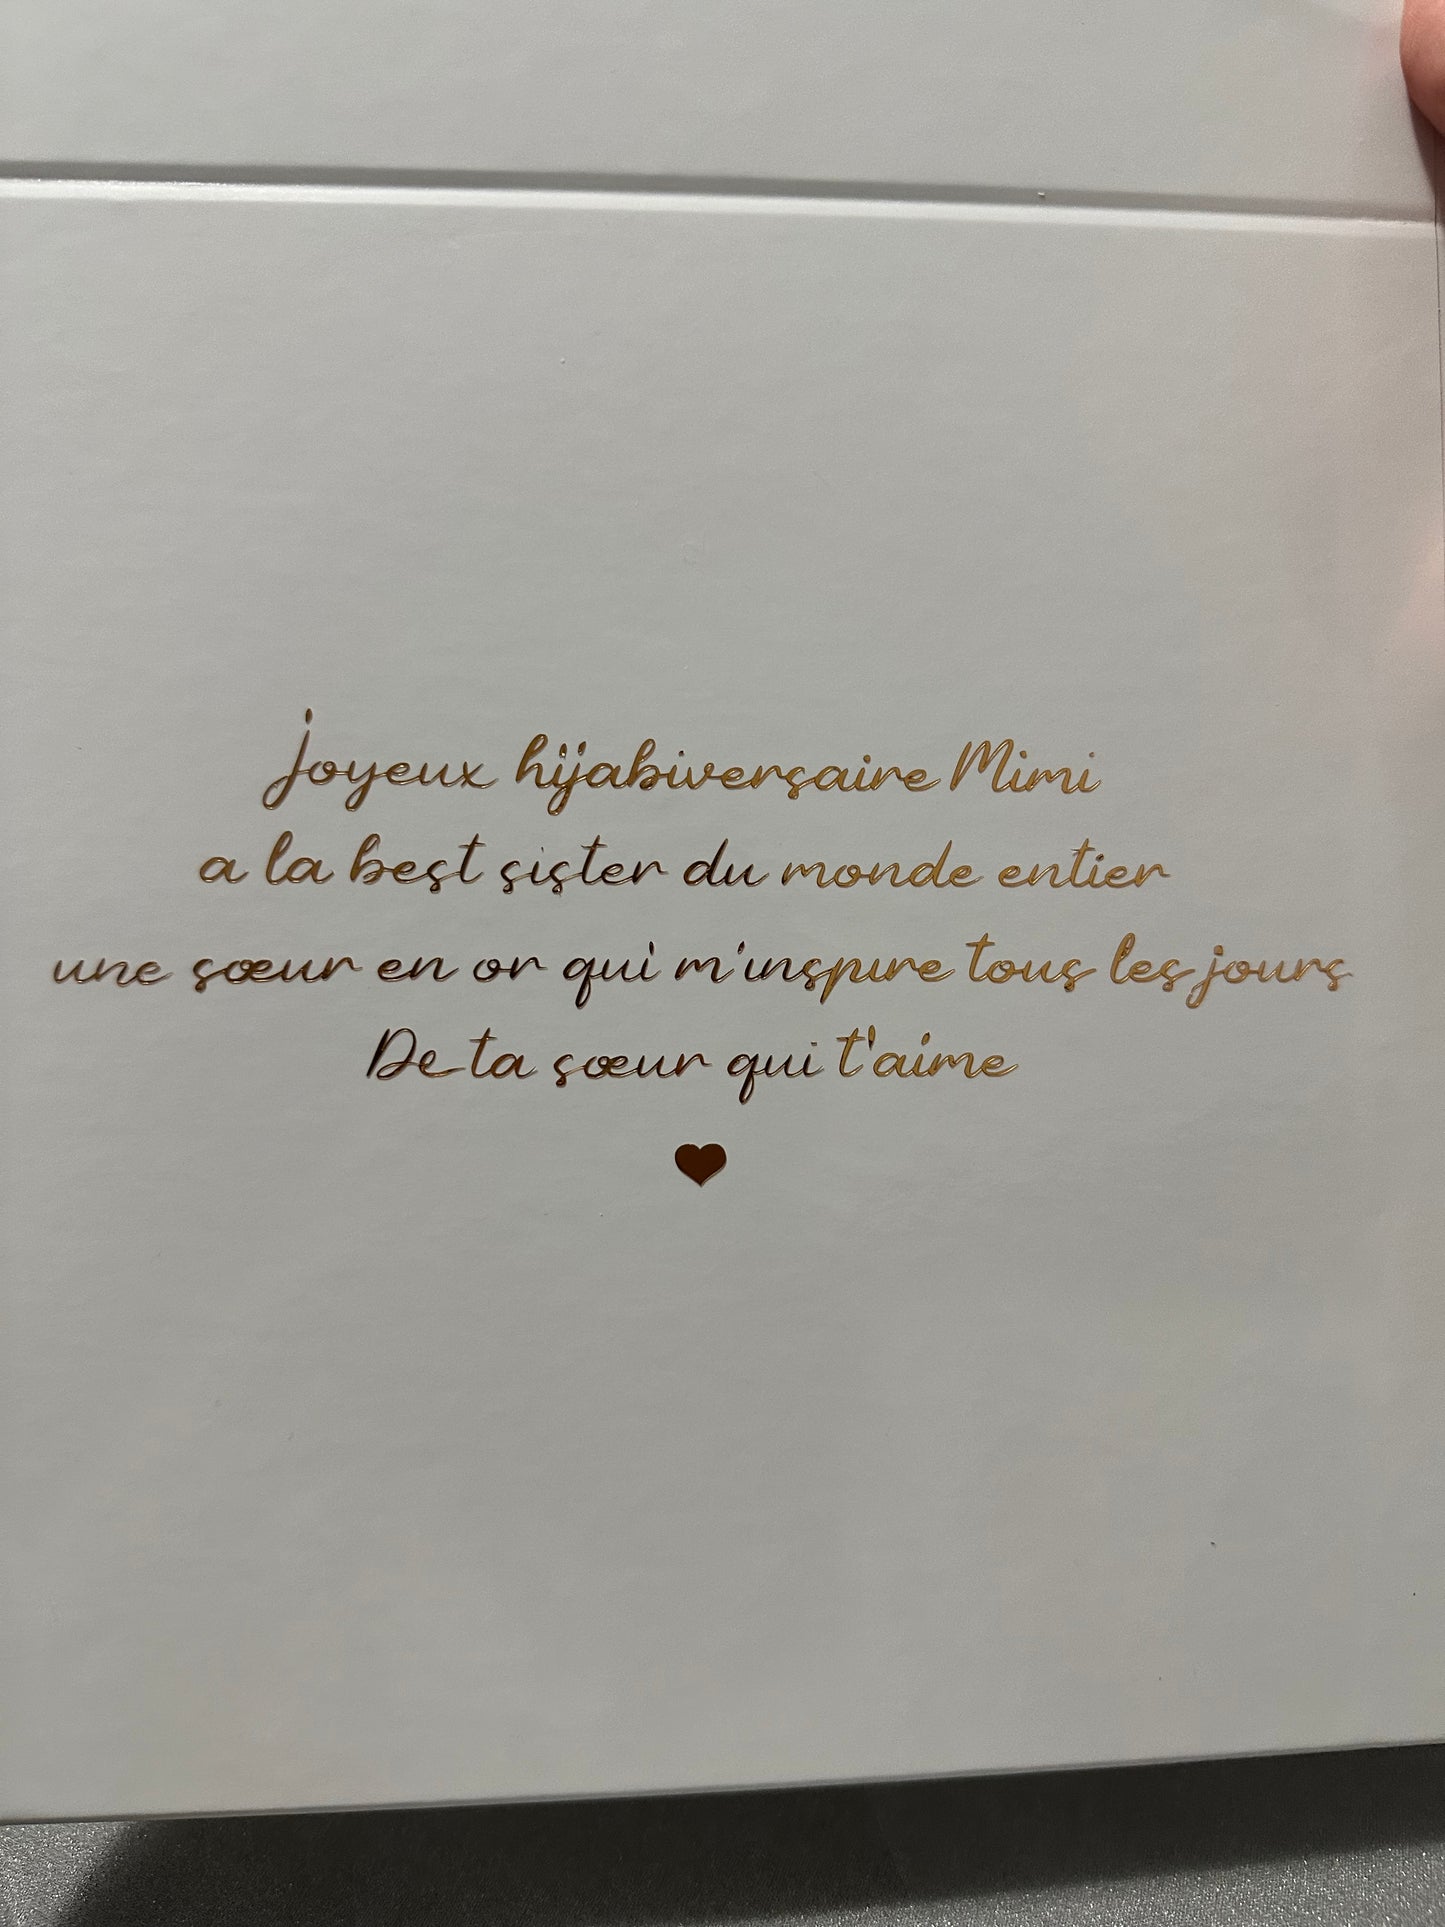 joyeux hijabiversaire Mimi
a la best sister du monde entier
une sœur en or qui m'inspire tous les jours
De ta sœur qui t'aime